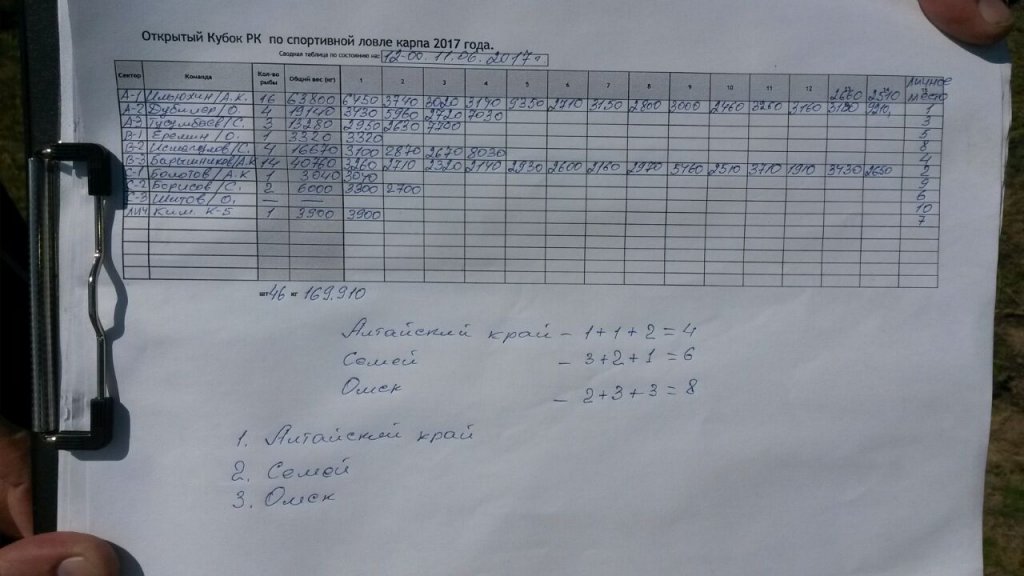 Открытый Кубок РК по спортивной ловле карпа 2017 года.
Сводная таблица по состоянию на: 12-00. 11.06.2017г.
Сектор Команда Кол-во рыбы Общий вес (кг) 1 2 3 4 5 6 7 8 9 10 11 12 личное место
А-1 Ильюхин/А.К. 16 63800 6450 3740 3020 3140 9350 2910 3150 2800 3000 2460 3260 3160 1
А-2 4 19140 3430 5960 2720 7030 3
А-3 3 13280 2950 2630 7700 5
В-1 Еремин/О. 1 3320 3320 8
В-2 4 16670 3100 2870 2670 8030 4
В-3 Барышников/А.К 14 40760 3260 2710 2320 2140 2930 2600 2160 2970 5460 2510 3710 1910 3430 2650 2
С-1 Болотов/А.К 1 3040 3040 9
С-2 Борисов/С. 2 6000 3300 2700 6
С-3 Шитов/О. — — 10
ЛИЧ Ким К-5 1 3900 3900 7
шт 46 кг 169.910
Алтайский край – 1+1+2=4
Семей – 3+2+1=6
Омск – 2+3+3=8
1. Алтайский край
2. Семей
3. Омск